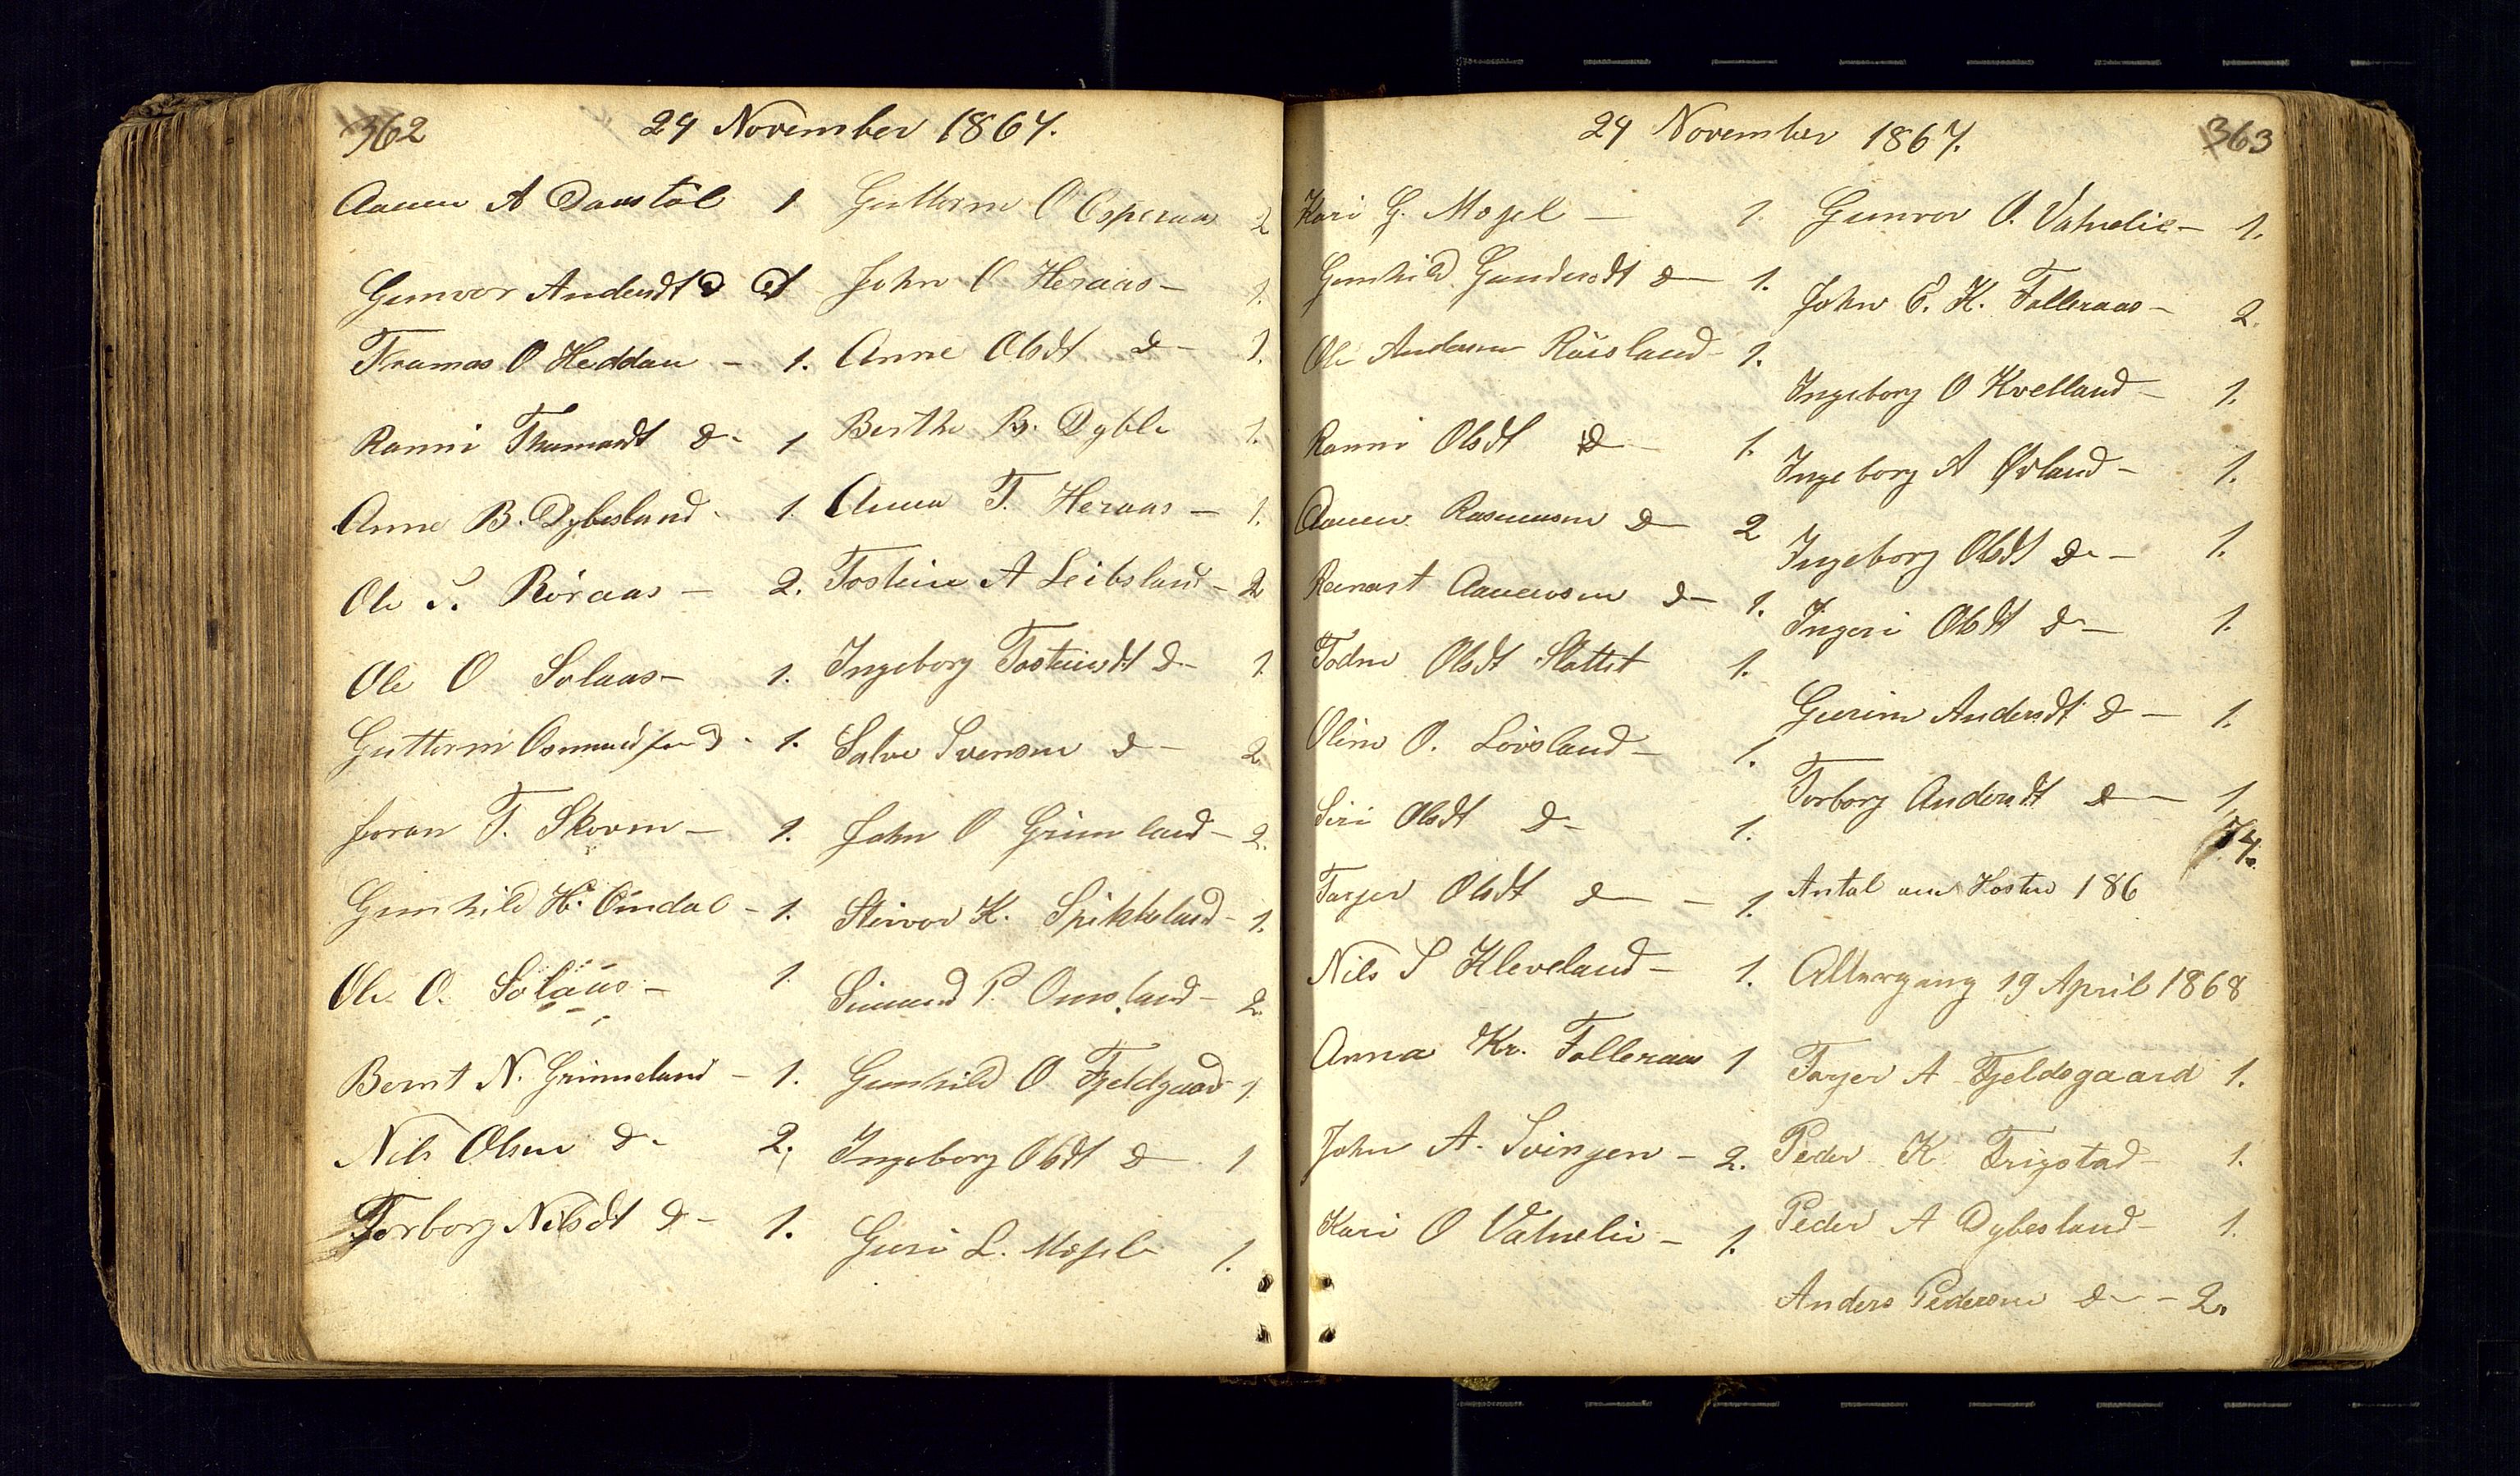 362
24 November 1867.
Aanen A Daastöl 1
Gunvor Andersdt D 1
Tramos O Heddan - 1.
Ranni Thomasdt D- 1
Anne B. Dybesland - 1.
Ole S. Röraas - 2.
Ole O Solaas - 1.
Guttorm Osmundsen D - 1.
Joran T. Skoven - 1.
Gunhild H. Omdal - 1.
Ole O. Solaas - 1.
Bernt N. Grimeland - 1.
Nils Olsen D- 2.
Torborg Nilsdt D- 1.
Guttorm O Esperaas 2
John O Heraas - 1.
Anne Olsdt D- 1.
Berthe B. Dyble 1.
Anna T. Heraas - 1.
Tostein A Leibsland - 2
Ingeborg Tosteinsdt D- 1.
Salve Svenson D- 2
John O Grimland - 2.
Stirvor K. Spikkeland - 1.
Simund P. Omsland - 2.
Gunhild O Fjeldgaard 1
Ingeborg Olsdt D- 1
Guri L. Mosel 1.
24 November 1867.
363
Kari G. Mosel - 1.
Gunhild Gundersdt D- 1.
Ole Anderson Röisland - 1.
Ranni Olsdt D- 1.
Aanen Rasmuson D- 2
Reinert Aanenson D- 1.
Todne Olsdt Slottet 1.
Oline O. Lövsland - 1.
Siri Olsdt D- 1.
Tarjer Olsdt D- - 1.
Nils S Kleveland - 1.
Anna Kr. Folleraas 1
John A. Svingen - 2.
Kari O Vatnelie - 1.
Gunvor O. Vatnelie - 1.
John E. K. Folleraas - 2.
Ingeborg O Kvelland - 1.
Ingeborg A Øvland - 1.
Ingeborg Olsdt D- - 1.
Ingeri Olsdt D- 1.
Gurine Andersdt D- 1.
Torborg Andersdt D- - 1.
74.
Antal om Hosten 186
Altergang 19 April 1868
Tarjer A Fjeldsgaard 1.
Peder K Trygstad - 1.
Peder A Dybesland - 1.
Anders Pederson D- - 2.